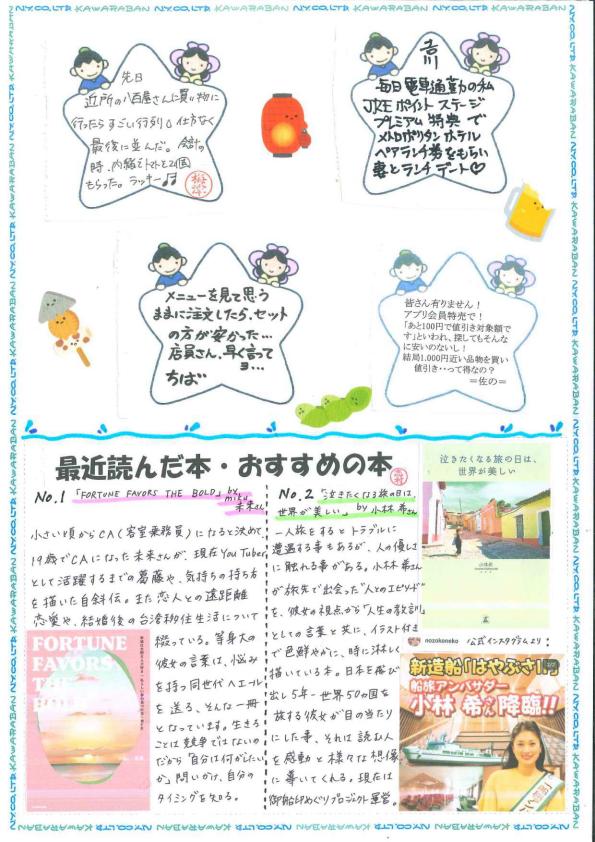 先日
近所の八百屋さんに買い物に
行ったらすごい行列。仕方なく
最後に並んだ。会計の
時、内緒とトマトを2個
もらった。ラッキー♫
吉川
毎日電車通勤の私
JREポイントステージ
プレミアム特典で
メトロポリタンホテル
ペアランチ券をもらい
妻とランチデート♡
メニューを見て思う
ままに注文したら、セット
の方が安かった…
店員さん、早く言って
ヨ…
ちば
皆さん有りません！
アプリ会員特売で！
「あと100円で値引き対象額で
す」といわれ、探してもそんな
に安いのないし！
結局1,000円近い品物を買い
値引き・・って得なの？
＝佐の＝
最近読んだ本・おすすめの本
No.1 「FORTUNE FAVORS THE BOLD」 by miku 未来さん
小さい頃からCA(客室乗務員)になると決めて、
19歳でCAになった未来さんが、現在YouTuber
として活躍するまでの葛藤や、気持ちの持ち方
を描いた自叙伝。また恋人との遠距離
恋愛や、結婚後の台湾移住生活について
綴っている。等身大の
彼女の言葉は、悩み
を持つ同世代へエール
を送る、そんな一冊
となっています。生きる
ことは競争ではないの
だから「自分は何がしたい
か」問いかけ、自分の
タイミングを知る。
FORTUNE
FAVORS
THE
BOLD
No.2 「泣きたくなる旅の日は、
世界が美しい」 by 小林希さん
一人旅をするとトラブルに
遭遇する事もあるが、人の優しさ
に触れる事がある。小林希さん
が旅先で出会った"人とのエピソード"
を、彼女の視点から"人生の教訓"
としての言葉と共に、イラスト付き
で色鮮やかに、時に淋しく
描いている本。日本を飛び
出し5年－世界50の国を
旅する彼女が目の当たり
にした事、それは読む人
を感動と様々な想像
に導いてくれる。現在は
御船印めぐりプロジェクト運営。
泣きたくなる旅の日は、
世界が美しい
小林希
nozokoneko 公式インスタグラムより
新造船「はやぶさII」
2/2
船旅アンバサダー
小林 希さん 降臨!!
KAWARABAN NY.CO.,LTD